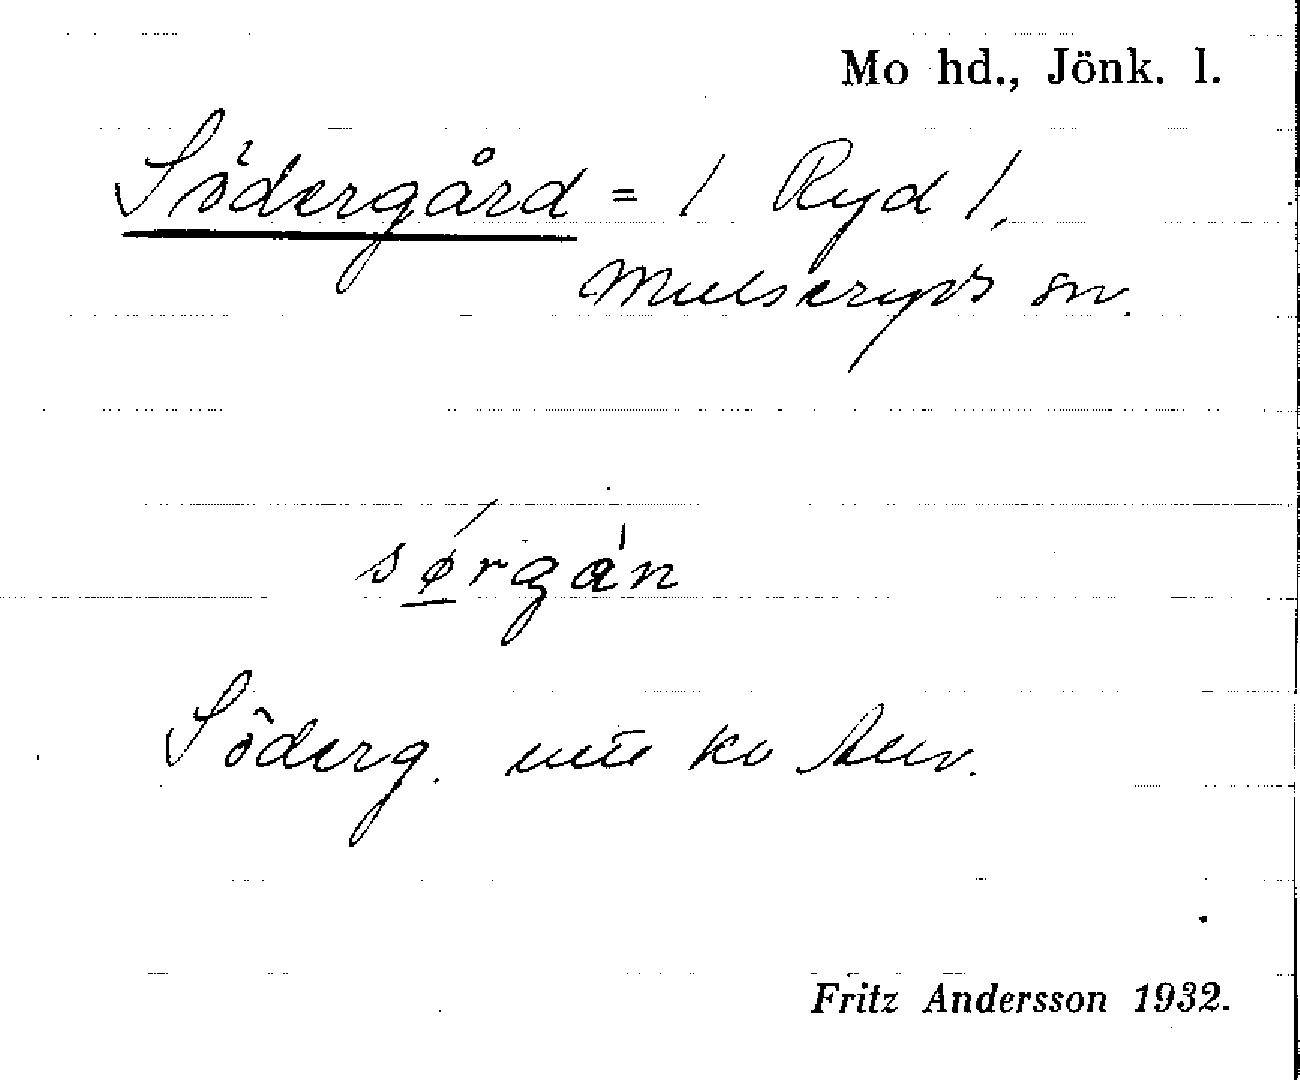 Mo hd., Jönk. l.
Södergård = / Ryd /,
Mulseryds sn.
sørgán
Söderg. ko
Fritz Andersson 1932.